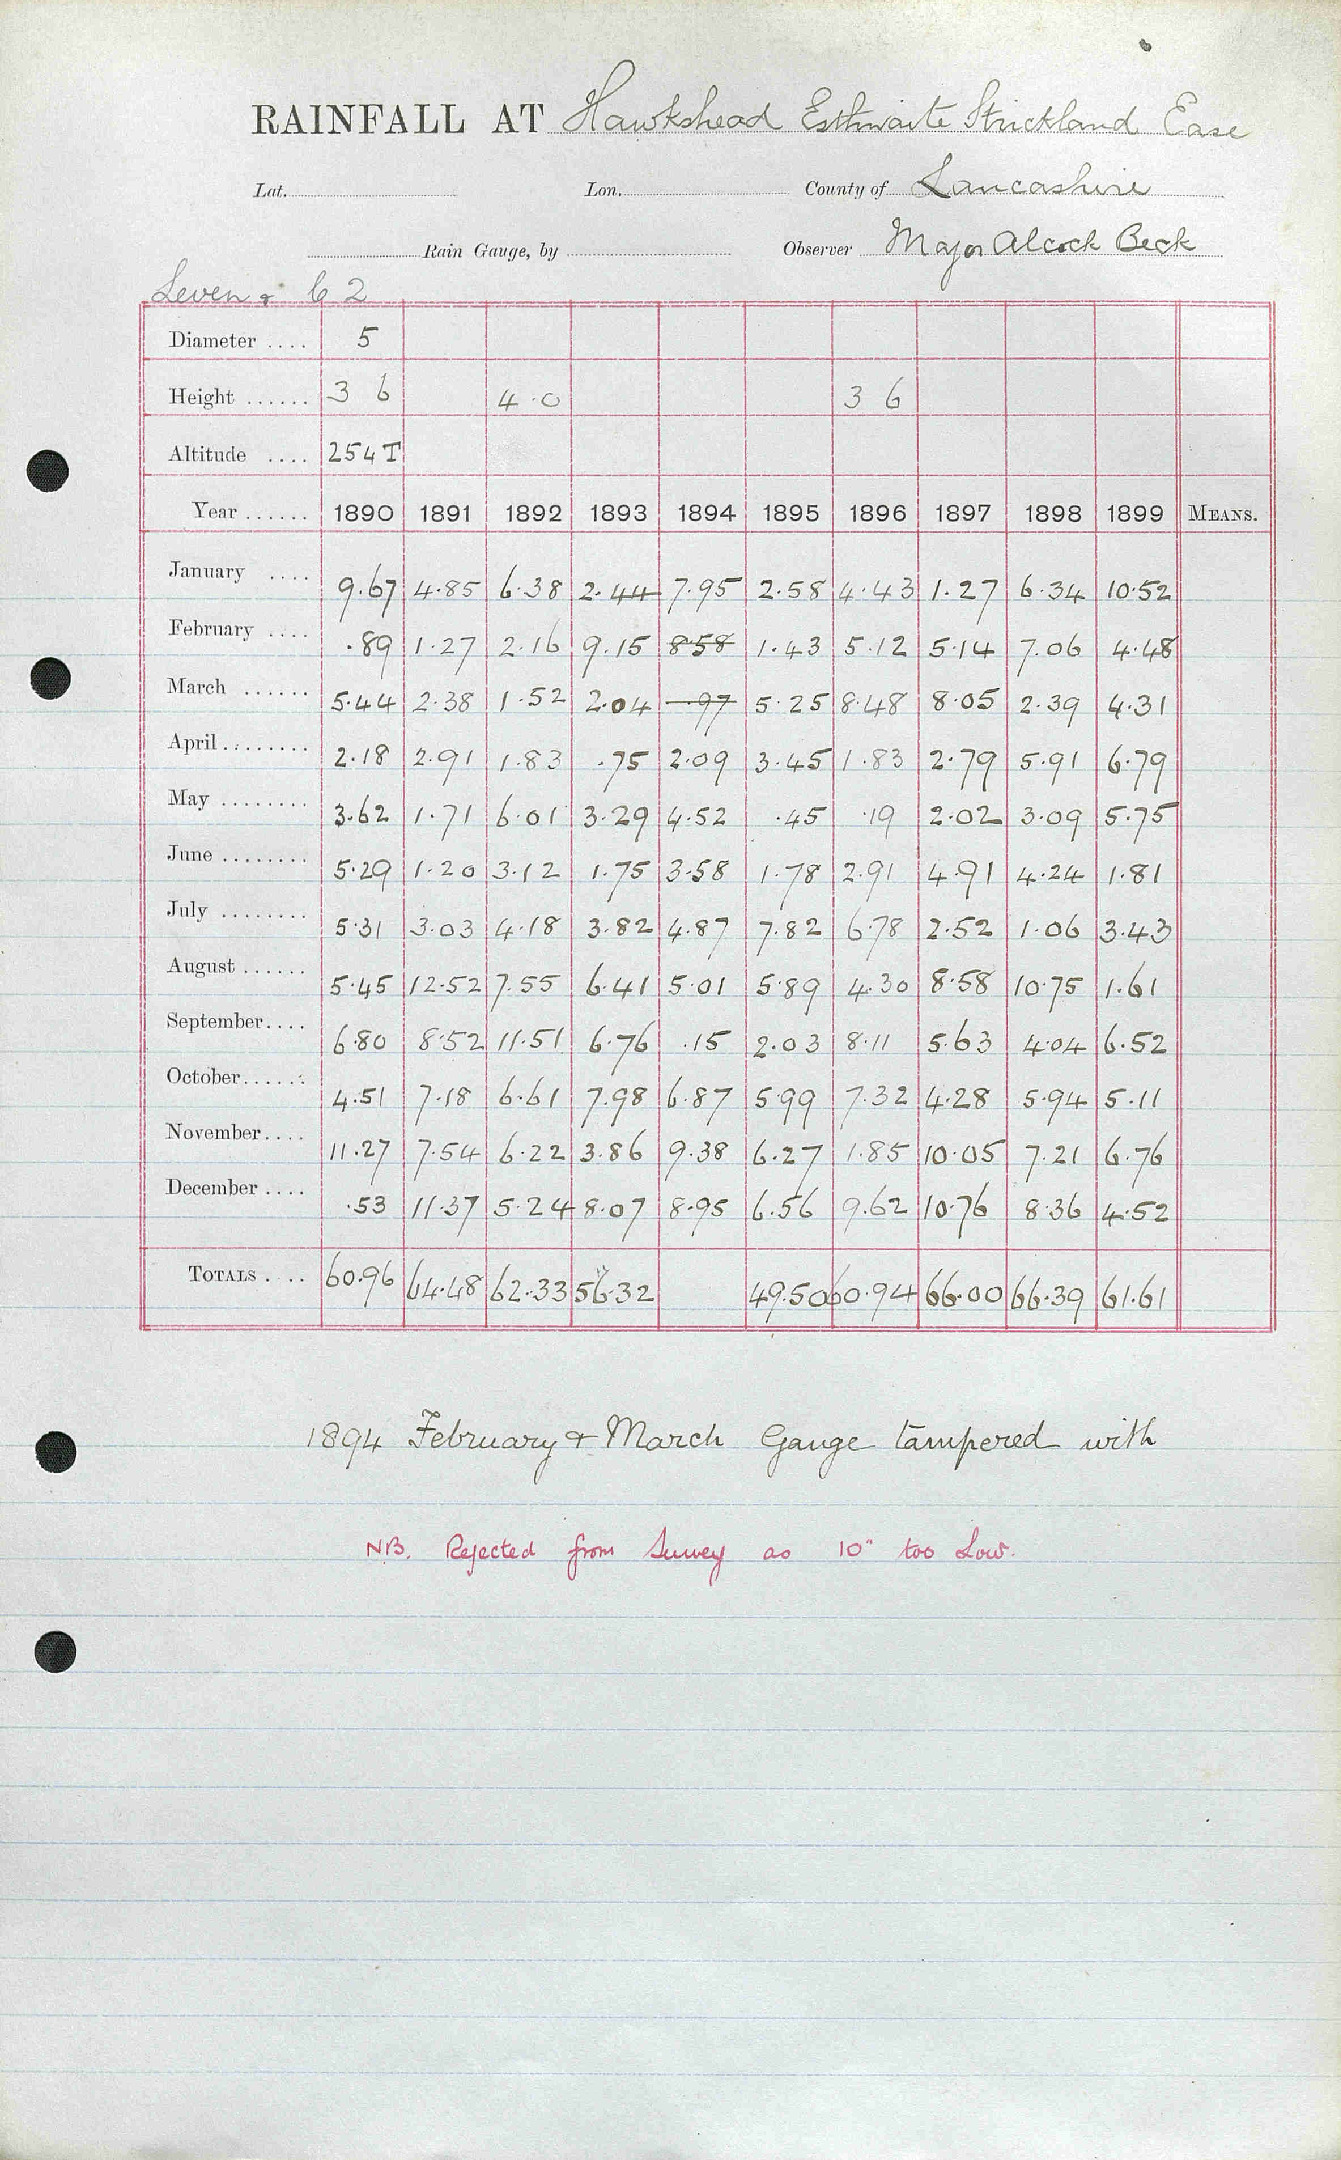 RAINFALL AT Hawkshead Esthwaite Strickland Ease
Lat. Lon. County of Lancashire
Rain Gauge, by Observer Major Alcock Beck
Leven & C 2
Diameter .... 5
Height ...... 3 6 4.0 3 6
Altitude .... 254T
Year ...... 1890 1891 1892 1893 1894 1895 1896 1897 1898 1899 MEANS.
January .... 9.67 4.85 6.38 2.44 7.95 2.58 4.43 1.27 6.34 10.52
February .... .89 1.27 2.16 9.15 858 1.43 5.12 5.14 7.06 4.48
March ...... 5.44 2.38 1.52 2.04 97 5.25 8.48 8.05 2.39 4.31
April ........ 2.18 2.91 1.83 .75 2.09 3.45 1.83 2.79 5.91 6.79
May ........ 3.62 1.71 6.01 3.29 4.52 .45 .19 2.02 3.09 5.75
June ........ 5.29 1.20 3.12 1.75 3.58 1.78 2.91 4.91 4.24 1.81
July ........ 5.31 3.03 4.18 3.82 4.87 7.82 6.78 2.52 1.06 3.43
August ...... 5.45 12.52 7.55 6.41 5.01 5.89 4.30 8.58 10.75 1.61
September .... 6.80 8.52 11.51 6.76 .15 2.03 8.11 5.63 4.04 6.52
October ...... 4.51 7.18 6.61 7.98 6.87 5.99 7.32 4.28 5.94 5.11
November .... 11.27 7.54 6.22 3.86 9.38 6.27 1.85 10.05 7.21 6.76
December .... .53 11.37 5.24 8.07 8.95 6.56 9.62 10.76 8.36 4.52
TOTALS .... 60.96 64.48 62.33 56.32 49.50 60.94 66.00 66.39 61.61
1894 February & March Gauge tampered with
NB. Rejected from Survey as 10" too Low.